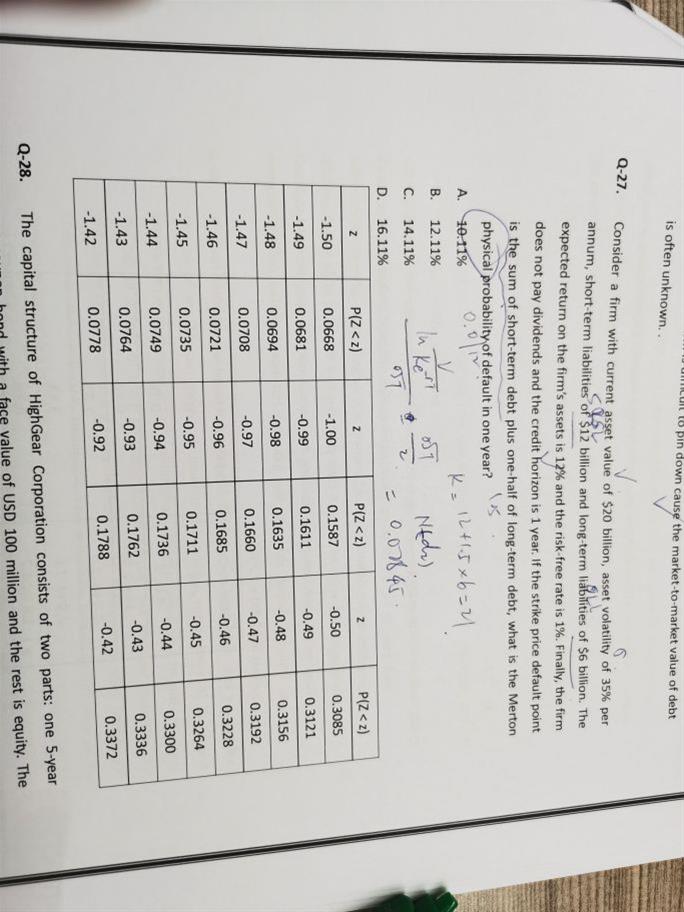 to pin down cause the market-to-market value of debt
is often unknown. .
Q-27. Consider a firm with current asset value of $20 billion, asset volatility of 35% per
annum, short-term liabilities of $12 billion and long-term liabilities of $6 billion. The
expected return on the firm's assets is 12% and the risk-free rate is 1%. Finally, the firm
does not pay dividends and the credit horizon is 1 year. If the strike price default point
is the sum of short-term debt plus one-half of long-term debt, what is the Merton
physical probability of default in one year?
A. 10.11%
B. 12.11%
C. 14.11%
D. 16.11%
K = 12+1.5×6=21
= 0.07845.
z P(Z < z) z P(Z < z) z P(Z < z)
-1.50 0.0668 -1.00 0.1587 -0.50 0.3085
-1.49 0.0681 -0.99 0.1611 -0.49 0.3121
-1.48 0.0694 -0.98 0.1635 -0.48 0.3156
-1.47 0.0708 -0.97 0.1660 -0.47 0.3192
-1.46 0.0721 -0.96 0.1685 -0.46 0.3228
-1.45 0.0735 -0.95 0.1711 -0.45 0.3264
-1.44 0.0749 -0.94 0.1736 -0.44 0.3300
-1.43 0.0764 -0.93 0.1762 -0.43 0.3336
-1.42 0.0778 -0.92 0.1788 -0.42 0.3372
Q-28. The capital structure of HighGear Corporation consists of two parts: one 5-year
bond with a face value of USD 100 million and the rest is equity. The